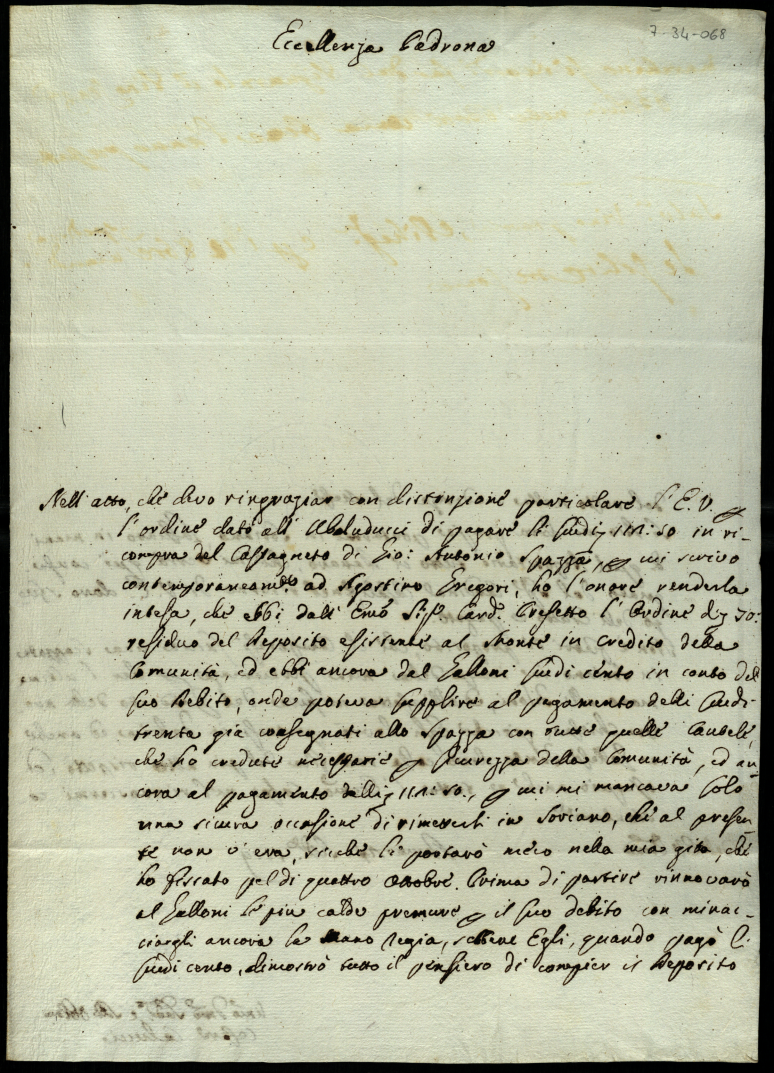 7-34-068
Eccellenza Padrona
Nell'atto, che devo ringraziar con distinzione particolare l'E.V. p
l'ordine dato all' di pagare li scudi 111:50 in ri-
compra del Castagneto di Gio: Antonio Spazza, p cui scrivo
contemporaneam.te ad Agostino Gregori, ho l'onore renderla
intesa, che ebbi dall'Emo Sig.r Card.l Prefetto l'Ordine di 30:
residuo del Deposito esistente al Monte in credito della
Comunità, ed ebbi ancora dal Galloni scudi cento in conto del
suo Debito, onde poteva supplire al pagamento delli Scudi
trenta già consegnati allo Spazza con tutte quelle Cautele,
che ho credute necessarie p sicurezza della Comunità, ed an-
cora al pagamento delli 111:50, p cui mi mancava solo
una sicura occasione di rimetterli in Soriano, che al presen-
te non v'era, sicche li portarò meco nella mia gita, che
ho fissato pel dì quattro Ottobre. Prima di partire rinnovarò
al Galloni le più calde premure p il suo debito con minac-
ciargli ancora la Mano Regia, sebene Egli, quando pagò li
scudi cento, dimostrò tutto il pensiero di compier il Deposito